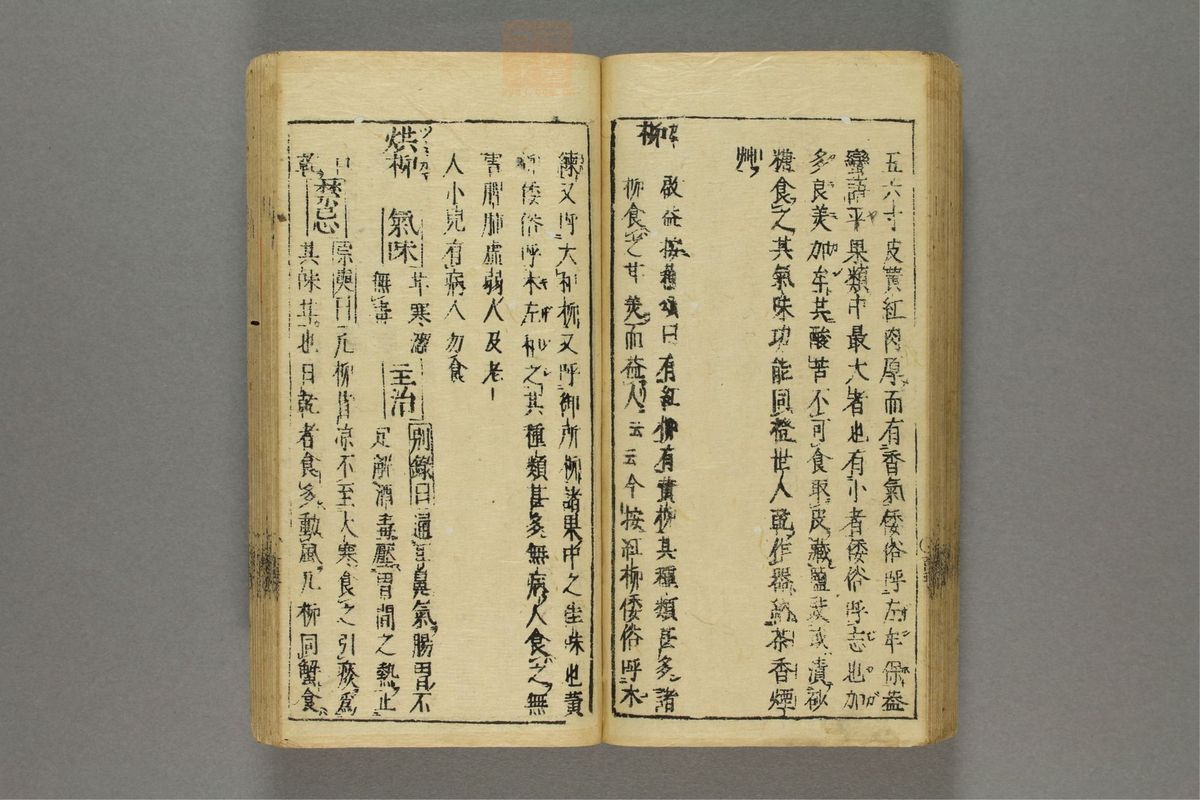 五六寸皮黄紅肉厚而有香氣倭俗呼左牟保盎
蠻語平果類中最大者也有小者倭俗呼志也加
多良美加牟其酸苦不可食取皮藏鹽或漬砂
糖食之其氣味功能同橙世人乾作器納茶香煙
艸
柹
啟益按蘓頌曰有紅柹有黄柹其種類甚多諸
柹食之甘美而益人云云今按紅柹倭俗呼木
練又呼大和柹又呼御所柹諸果中之佳味也黄
柹倭俗呼木左和之其種類甚多無病人食之無
害脾肺虚弱人及老
人小兒有病人勿食
烘柹 氣味 甘寒濇無毒 主治 別錄曰通耳鼻氣腸胃不
足解酒毒壓胃間之熱止
口
乾 禁忌 宗奭曰凢柹皆凉不至大寒食之引痰爲
其味甘也日乾者食多動風凢柹同蟹食